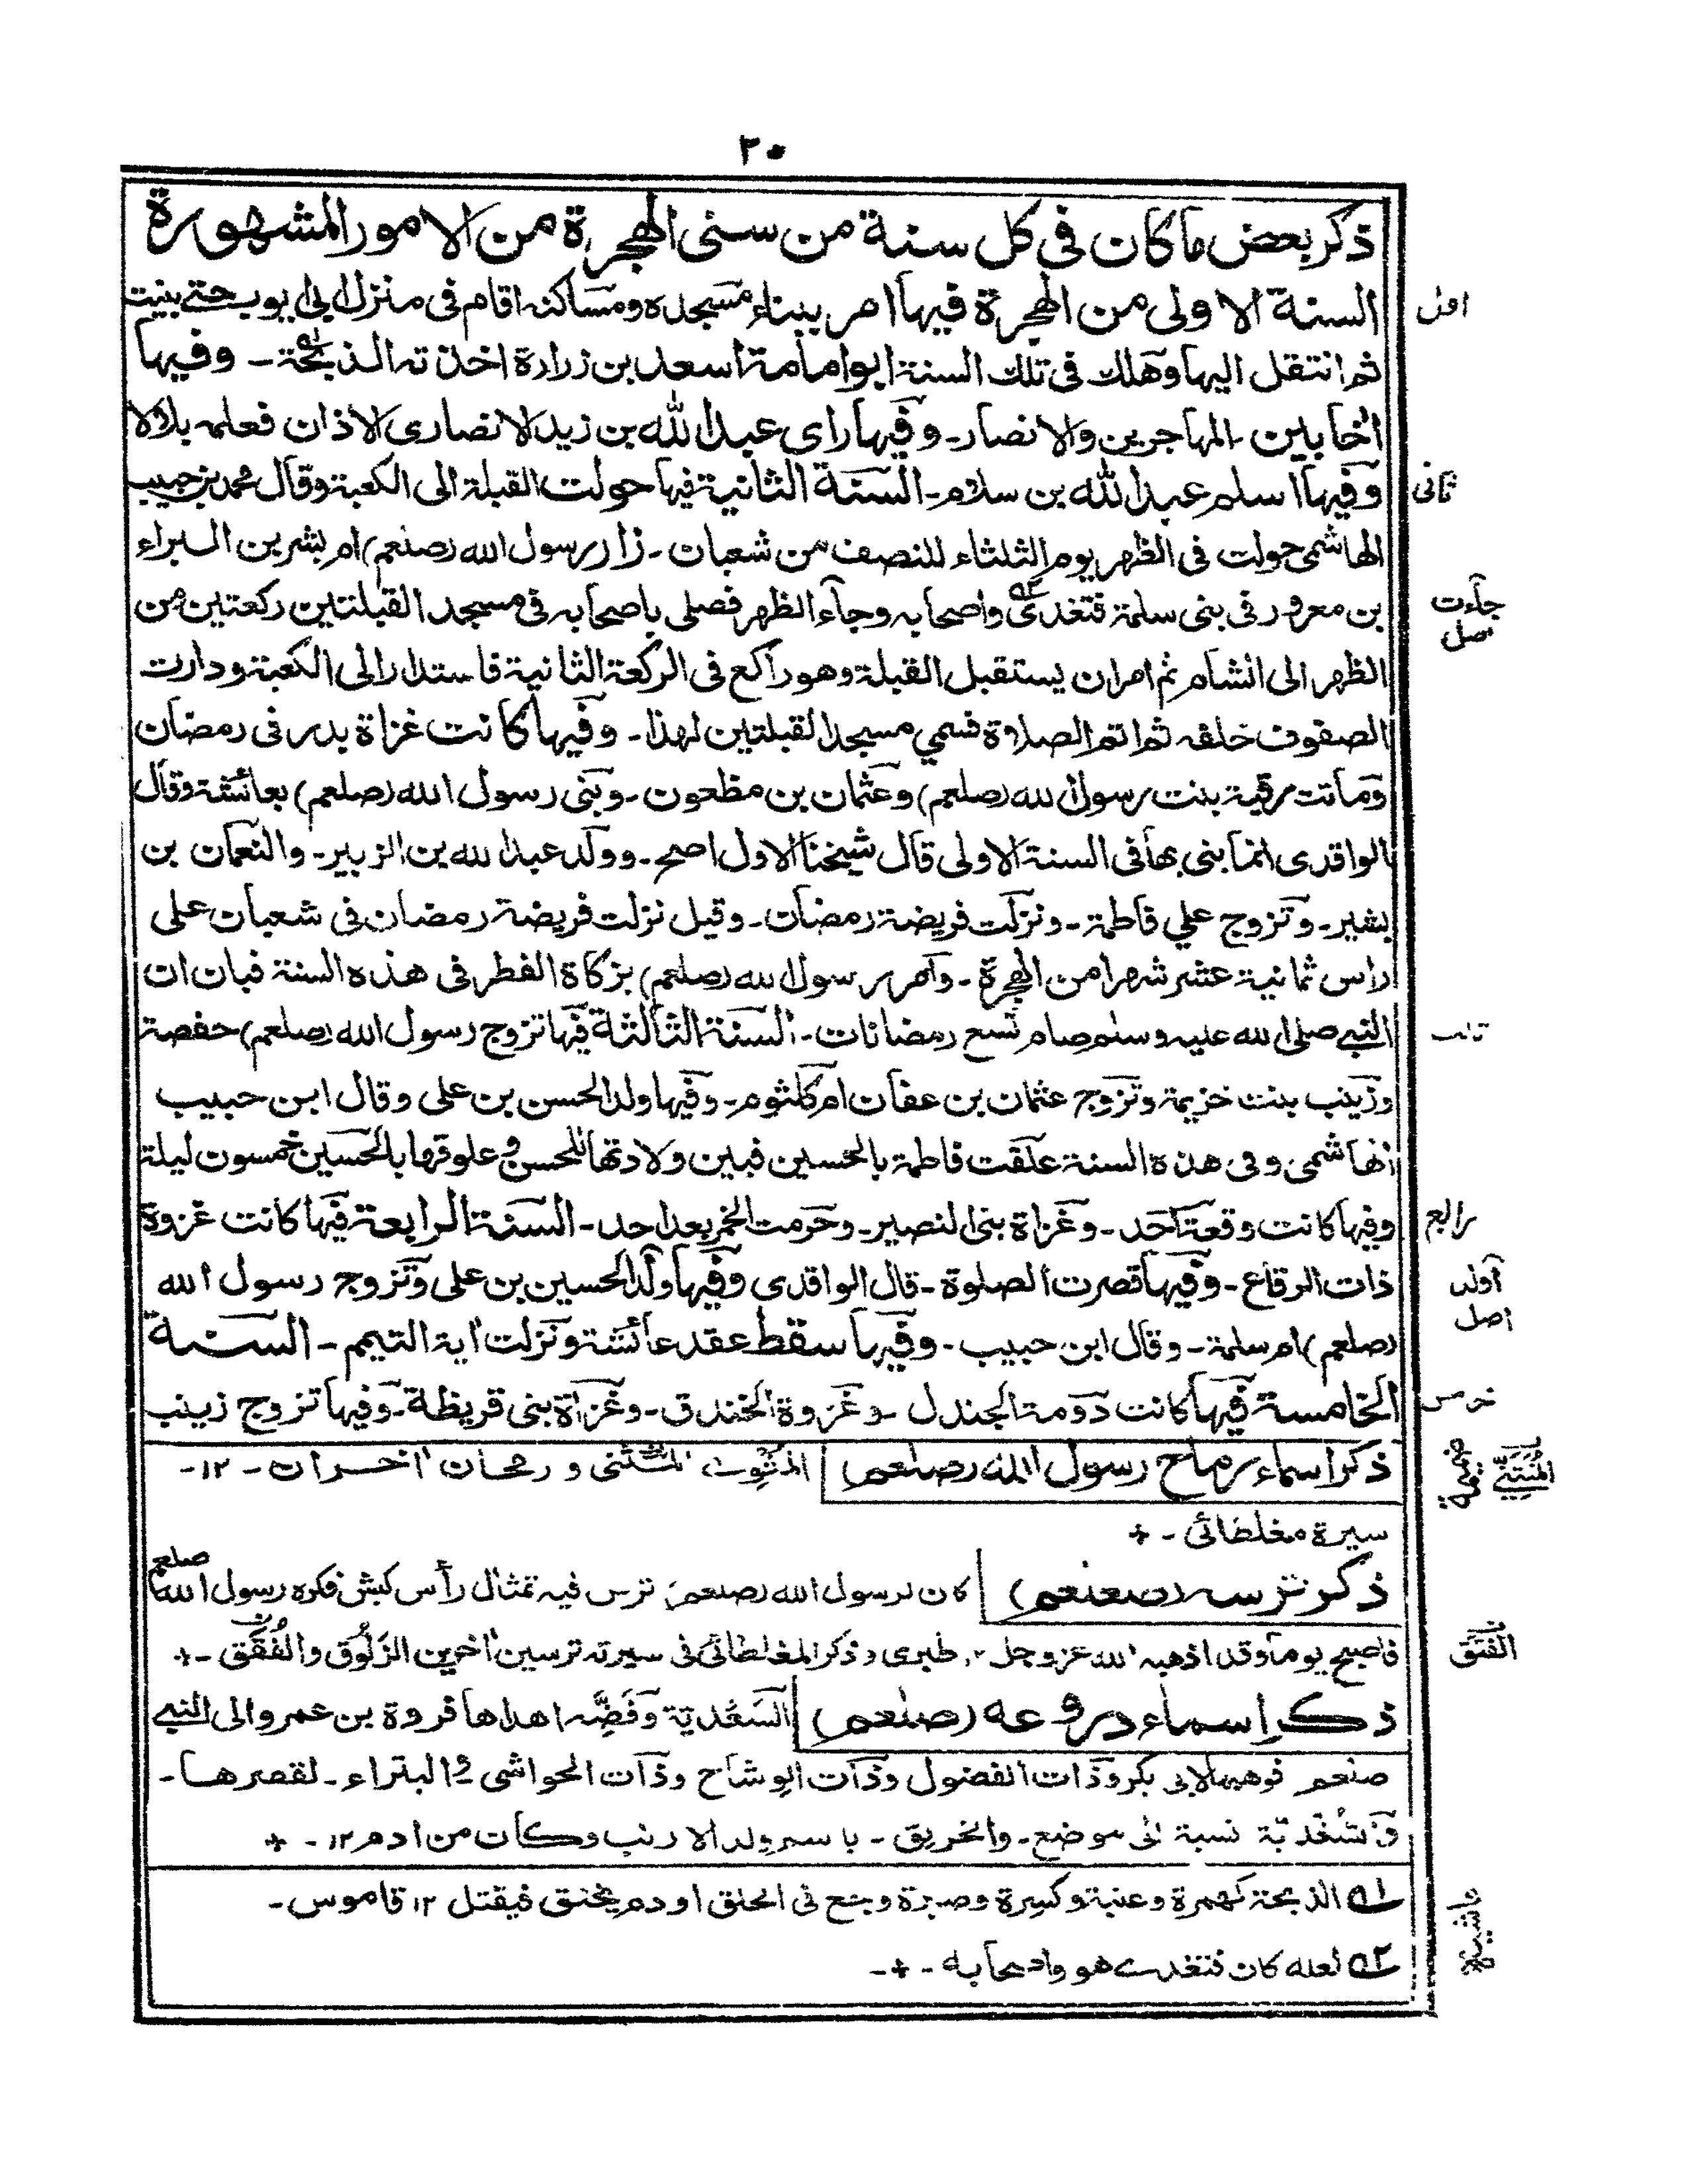 ٢٠
ذكر بعض ما كان فى كل سنة من سنى الهجرة من الامور المشهورة
السنة الاولى من الهجرة فيها امر ببناء مسجده ومساكنه اقام فى منزل ابى ايوب حتے بنيت
اول
ثم انتقل اليها وهلك فى تلك السنة ابو امامة اسعد بن زرارة اخذ ته الذبحة ـ وفيها
اخا بين المهاجرين والانصار ـ وفيها راى عبد الله بن زيد الانصارى الاذان فعلمه بلالا
وفيها اسلم عبد الله بن سلام ـ السنة الثانية فيها حولت القبلة الى الكعبة وقال محمد بن حبيب
ثانى
الهاشمى حولت فى الظهر يوم الثلثاء للنصف من شعبان ـ زار رسول الله (صلعم) ام بشر بن البراء
بن معرور فى بنى سلمة فتغدى واصحابه وجآء الظهر فصلى باصحابه فى مسجد القبلتين ركعتين من
جآءت
اصل
الظهر الى الشام ثم امر ان يستقبل القبلة وهو راكع فى الركعة الثانية فاستدار الى الكعبة ودارت
الصفوف خلفه ثم اتم الصلاوة فسمي مسجد القبلتين لهذا ـ وفيها كانت غزاة بدر فى رمضان
وماتت رقية بنت رسول الله (صلعم) وعثمان بن مظعون ـ وبنى رسول الله (صلعم) بعائشة وقال
الواقدى انما بنى بها فى السنة الاولى قال شيخنا الاول اصح ـ وولد عبد الله بن الزبير ـ والنعمان بن
بشير ـ وتزوج علي فاطمة ـ ونزلت فريضة رمضان ـ وقيل نزلت فريضة رمضان فى شعبان على
راس ثمانية عشر شهرا من الهجرة ـ وامر رسول الله (صلعم) بزكاة الفطر فى هذه السنة فبان ان
النبے صلى الله عليه وسلم صام تسع رمضانات ـ السنة الثالثة فيها تزوج رسول الله (صلعم) حفصة
وزينب بنت خزيمة وتزوج عثمان بن عفان ام كلثوم ـ وفيها ولد الحسن بن على وقال ابن حبيب
الهاشمى وفى هذه السنة علقت فاطمة بالحسين فبين ولادتها للحسن و علوقها بالحسين خمسون ليلة
وفيها كانت وقعة احد ـ وغزاة بنى النضير ـ وحرمت الخمر بعد احد ـ السنة الرابعة فيها كانت غزوة
رابع
ذات الرقاع ـ وفيها قصرت الصلوة ـ قال الواقدى وفيها ولد الحسين بن على وتزوج رسول الله
اولد
اصل
(صلعم) ام سلمة ـ وقال ابن حبيب ـ وفيها سقط عقد عائشة ونزلت اية التيمم ـ السنة
الخامسة فيها كانت دومة الجندل ـ و غزوة الخندق ـ وغزاة بنى قريظة ـ وفيها تزوج زينب
ذكر اسماء رماح رسول الله (صلعم) المثوى المتثنى و رمحان اخران ـ ١٢ ـ
سيرة مغلطائى ـ +
ذكر ترسه (صلعم) كان لرسول الله (صلعم) ترس فيه تمثال رأس كبش فكره رسول الله صلعم
فاصبح يوما وقد اذهبه الله عز وجل ١٢ طبرى و ذكر المغلطائى فى سيرته ترسين اخرين الزلوق والفتق ـ +
الفتق
ذكر اسماء دروعه (صلعم) السعدية وفضه اهداها فروة بن عمرو الى النبے
صلعم فوهبها لابى بكر وذات الفضول وذات الوشاح وذات الحواشى و البتراء ـ لقصرها ـ
وسغدية نسبة الى موضع ـ والخريق ـ باسم ولد الارنب وكان من ادم ١٢ ـ +
ا؎ الذبحة كهمزة وعنبة وكسرة وصبرة وجع فى الحلق او دم يخنق فيقتل ١٢ قاموس ـ
حاشية
٢؎ لعله كان فتغدے هو واصحابه ـ + ـ